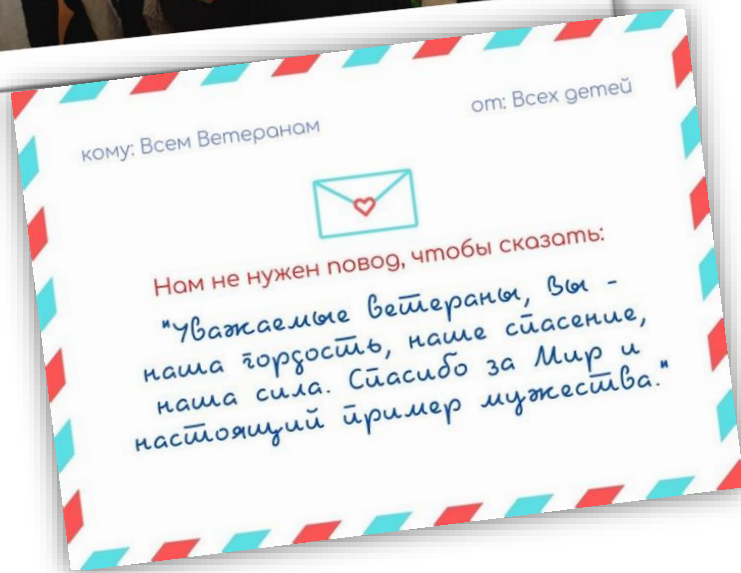 кому: Всем Ветеранам
от: Всех детей
Нам не нужен повод, чтобы сказать:
"Уважаемые ветераны, Вы -
наша гордость, наше спасение,
наша сила. Спасибо за Мир и
настоящий пример мужества."